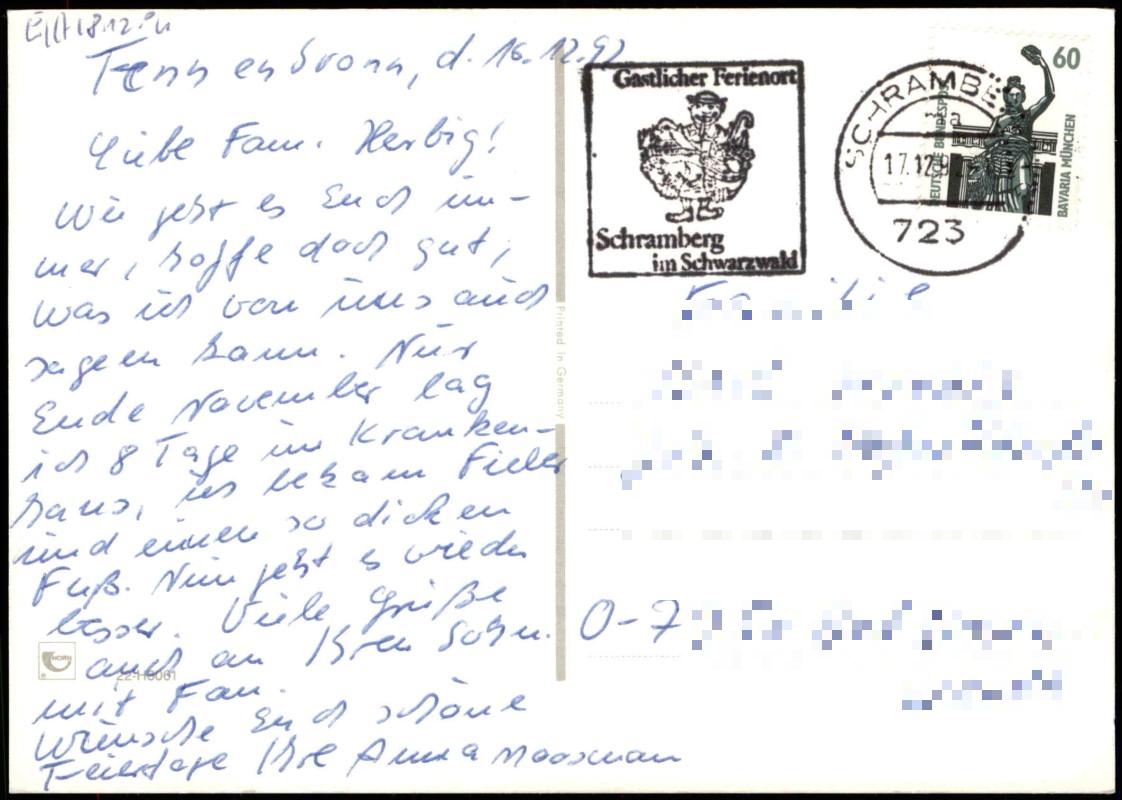 E//A 18.12.
Tennenbronn, d. 16.12.92
Liebe Fam. Herbig!
Wie geht es Euch im-
mer, hoffe doch gut,
was ich von uns auch
sagen kann. Nur
Ende November lag
ich 8 Tage im Kranken-
haus, ich bekam Fieber
und einen so dicken
Fuß. Nun geht es wieder
besser. Viele Grüße
auch an Ihren Sohn.
mit Fam.
Wünsche Euch schöne
Feiertage Ihre Anna Moosmann
HORN
22-H6061
Printed in Germany
Gastlicher Ferienort
Schramberg
im Schwarzwald
SCHRAMBE
17.12.9
723
60
DEUTSCHE BUNDESPOST
BAVARIA MÜNCHEN
Familie
O-7